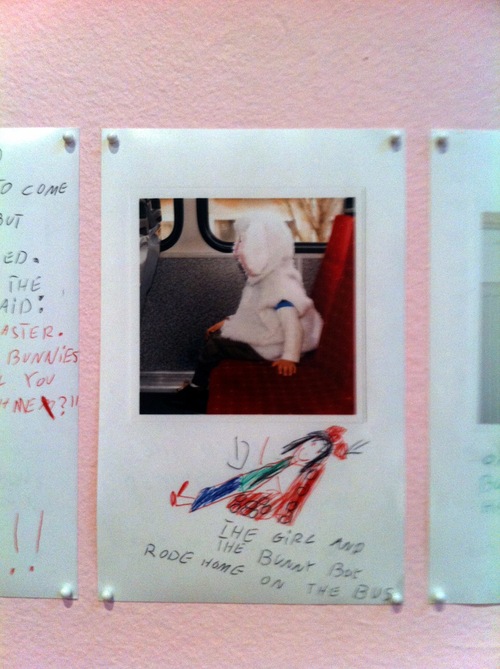 TO COME
BUT
ED.
THE
AID:
ASTER.
BUNNIES
YOU
ME?"
!!
THE GIRL AND
THE BUNNY BOY
RODE HOME ON THE BUS